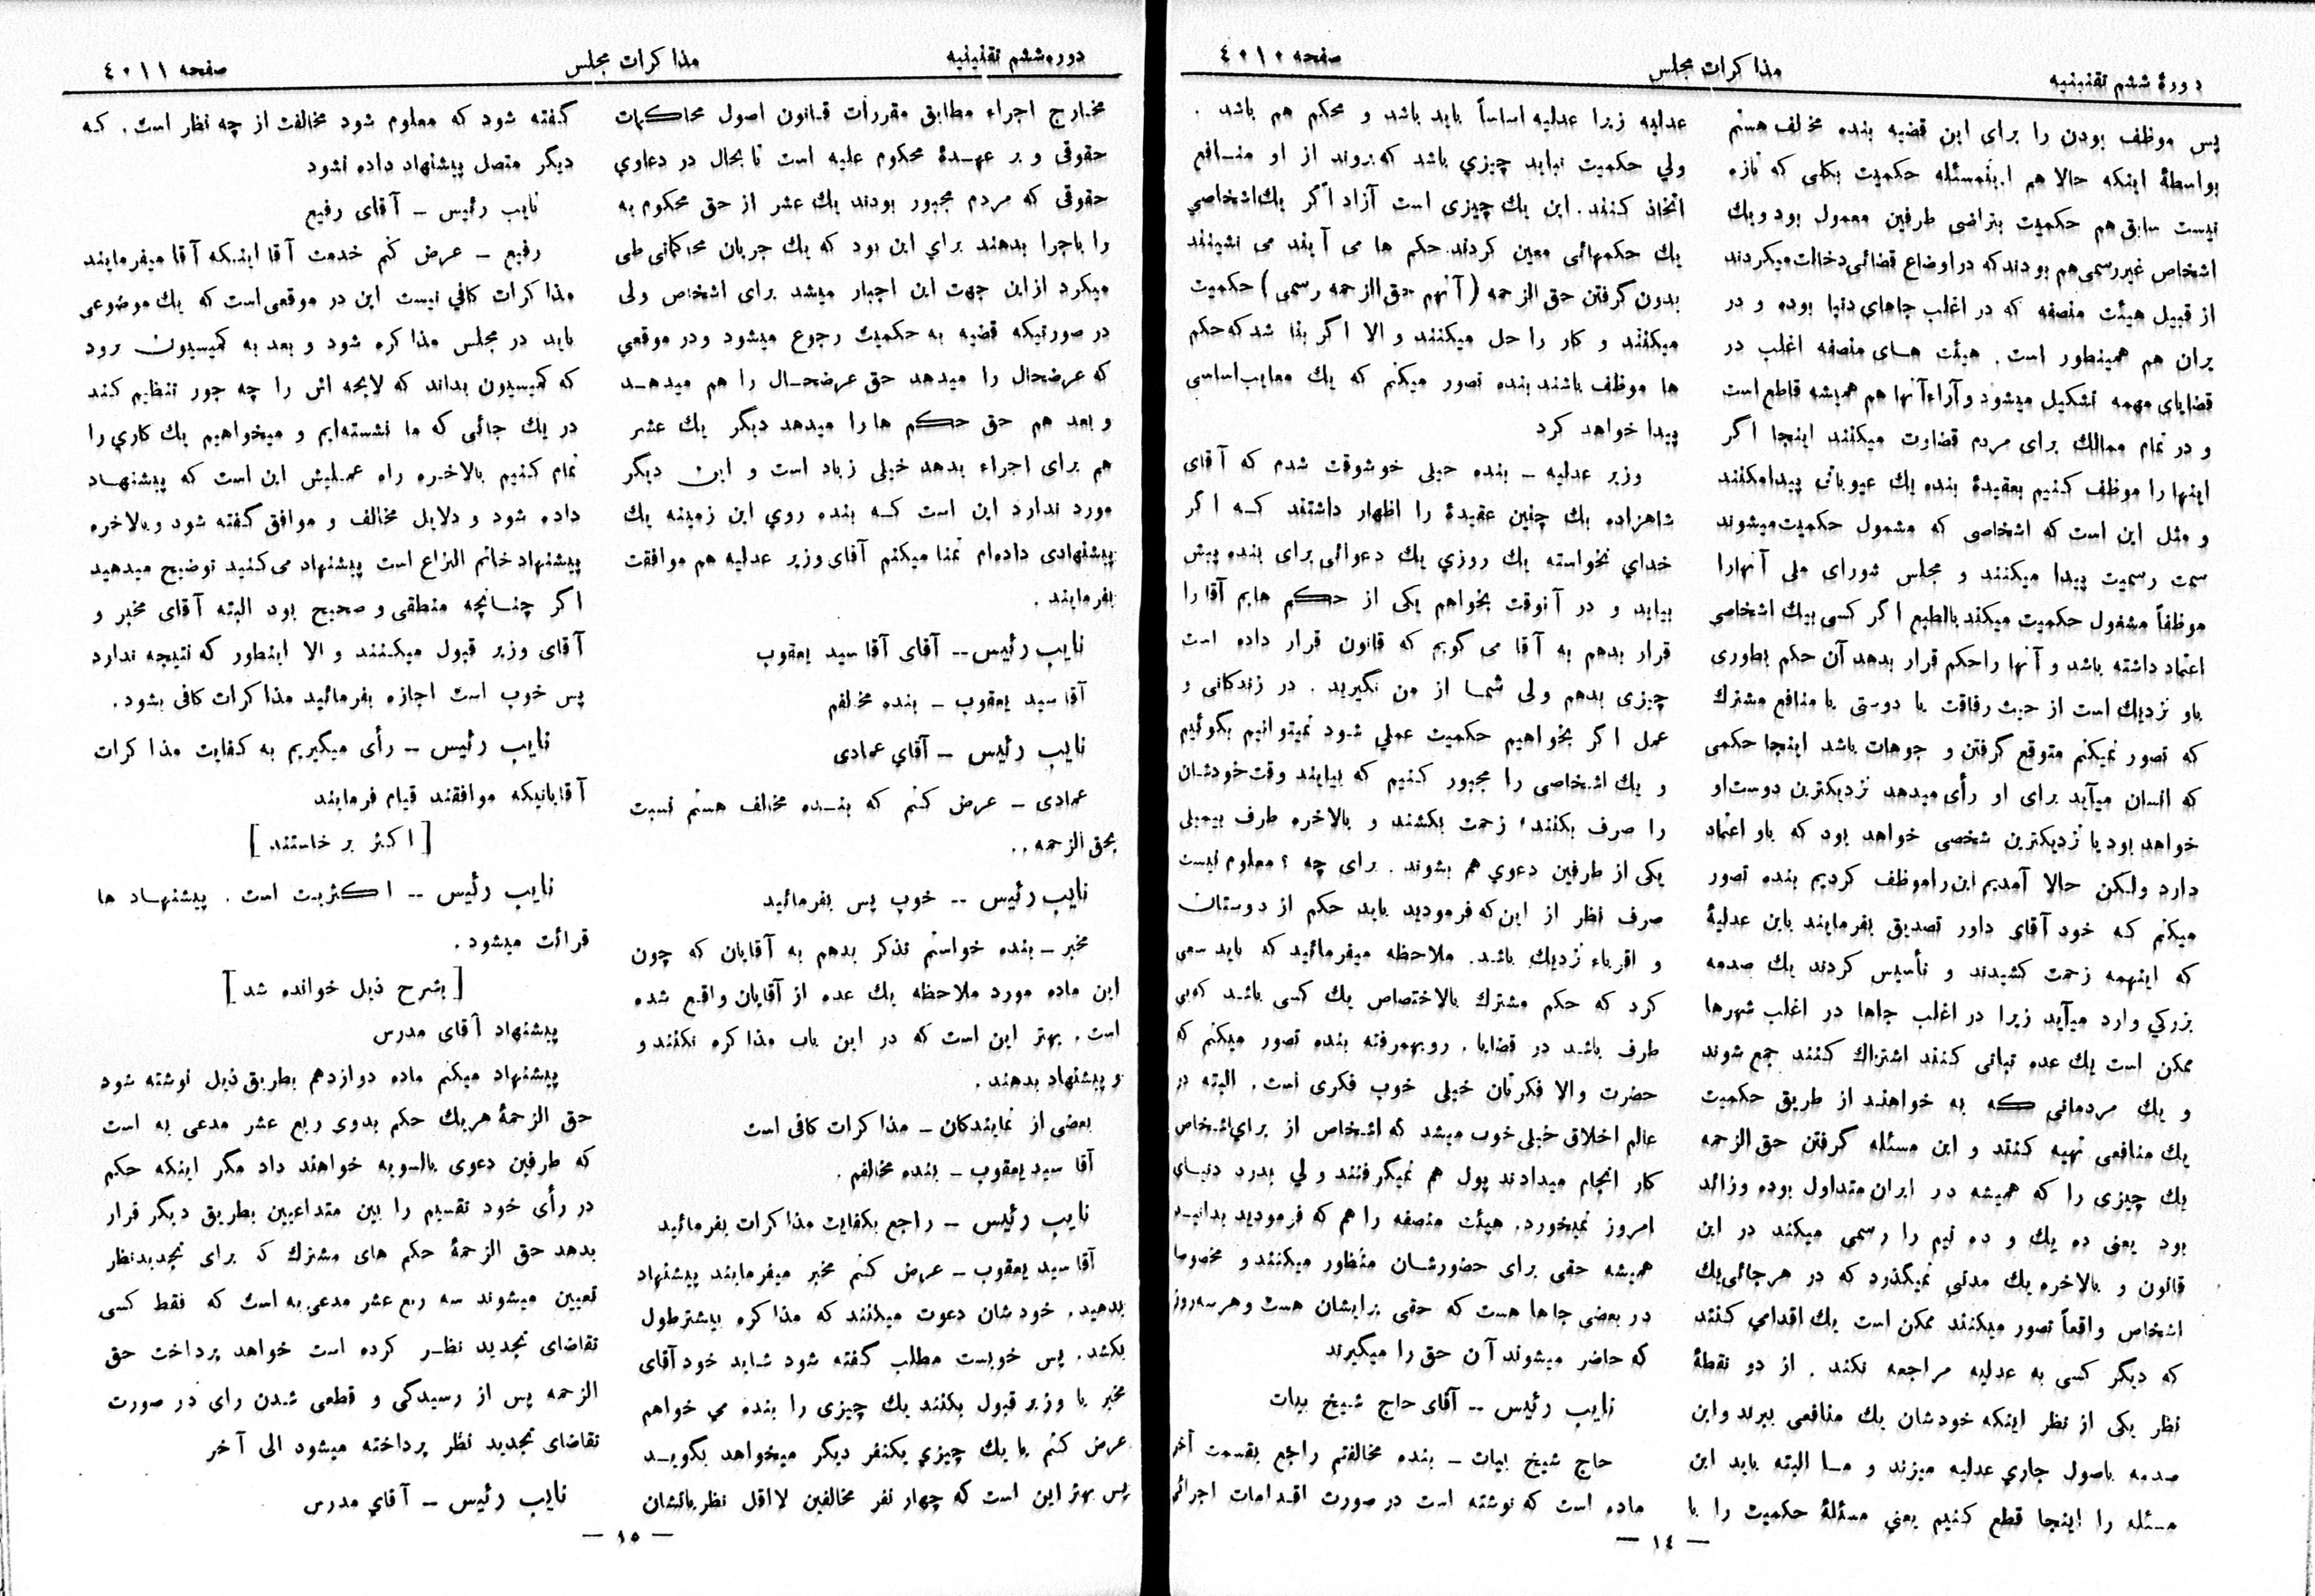 دورهٔ ششم تقنینیه
مذاکرات مجلس
صفحه ٤٠١٠
پس موظف بودن را برای این قضیه بنده مخالف هستم
بواسطهٔ اینکه حالا هم این مسئله حکمیت بکلی که تازه
نیست سابق هم حکمیت بتراضی طرفین معمول بود و یك
اشخاص غیررسمی هم بودند که در اوضاع قضائی دخالت میکردند
از قبیل هیئت منصفه که در اغلب جاهای دنیا بوده و در
یران هم همینطور است . هیئت های منصفه اغلب در
قضایای مهمه تشکیل میشود و آراء آنها هم همیشه قاطع است
و در تمام ممالك برای مردم قضاوت میکنند اینجا اگر
اینها را موظف کنیم بعقیدهٔ بنده یك عیوباتی پیدا میکنند
و مثل این است که اشخاصی که مشمول حکمیت میشوند
سمت رسمیت پیدا میکنند و مجلس شورای ملی آنهارا
موظفاً مشغول حکمیت میکند بالطبع اگر کسی بیك اشخاصی
اعتماد داشته باشد و آنها را حکم قرار بدهد آن حکم بطوری
باو نزدیك است از حیث رفاقت یا دوستی یا منافع مشترك
که تصور نمیکنم متوقع گرفتن و جوهات باشد اینجا حکمی
که انسان میآید برای او رأی میدهد نزدیکترین دوست او
خواهد بود یا نزدیکترین شخصی خواهد بود که باو اعتماد
دارد ولکن حالا آمدیم این را موظف کردیم بنده تصور
میکنم که خود آقای داور تصدیق بفرمایند باین عدلیهٔ
که اینهمه زحمت کشیدند و تأسیس کردند یك صدمه
بزرگی وارد میآید زیرا در اغلب جاها در اغلب شهرها
ممکن است یك عده تبانی کنند اشتراك کنند جمع شوند
و یك مردمانی که به خواهند از طریق حکمیت
یك منافعی تهیه کنند و این مسئله گرفتن حق الزحمه
یك چیزی را که همیشه در ایران متداول بوده و زائد
بود یعنی ده یك و ده نیم را رسمی میکند در این
قانون و بالاخره یك مدتی نمیگذرد که در هر جائی یك
اشخاص واقعاً تصور میکنند ممکن است یك اقدامی کنند
که دیگر کسی به عدلیه مراجعه نکند . از دو نقطهٔ
نظر یکی از نظر اینکه خودشان یك منافعی ببرند و این
صدمه باصول جاری عدلیه میزند و ما البته باید این
مسئله را اینجا قطع کنیم یعنی مسئلهٔ حکمیت را با
عدلیه زیرا عدلیه اساساً باید باشد و محکم هم باشد .
ولی حکمیت نباید چیزی باشد که بروند از او منافع
اتخاذ کنند . این یك چیزی است آزاد اگر یك اشخاصی
یك حکمهائی معین کردند حکم ها می آیند می نشینند
بدون گرفتن حق الزحمه (آنهم حق الزحمه رسمی) حکمیت
میکنند و کار را حل میکنند و الا اگر بنا شد که حکم
ها موظف باشند بنده تصور میکنم که یك معایب اساسی
پیدا خواهد کرد
وزیر عدلیه – بنده خیلی خوشوقت شدم که آقای
شاهزاده یك چنین عقیدهٔ را اظهار داشتند که اگر
خدای نخواسته یك روزی یك دعوائی برای بنده پیش
بیاید و در آنوقت بخواهم یکی از حکم هایم آقا را
قرار بدهم به آقا می گویم که قانون قرار داده است
چیزی بدهم ولی شما از من نگیرید . در زندگانی و
عمل اگر بخواهیم حکمیت عملی شود نمیتوانیم بگوئیم
و یك اشخاصی را مجبور کنیم که بیایند وقت خودشان
را صرف بکنند، زحمت بکشند و بالاخره طرف بیمیلی
یکی از طرفین دعوی هم بشوند . برای چه ؟ معلوم نیست
صرف نظر از این که فرمودید باید حکم از دوستان
و اقرباء نزدیك باشد . ملاحظه میفرمائید که باید سعی
کرد که حکم مشترك بالاختصاص یك کسی باشد که بی
طرف باشد در قضایا . رویهمرفته بنده تصور میکنم که
حضرت والا فکرتان خیلی خوب فکری است . البته در
عالم اخلاق خیلی خوب میشد که اشخاص از برای اشخاص
کار انجام میدادند پول هم نمیگرفتند ولی بدرد دنیای
امروز نمیخورد . هیئت منصفه را هم که فرمودید بدانید
همیشه حقی برای حضورشان منظور میکنند و مخصوصا
در بعضی جاها هست که حقی برایشان هست و هر سه روز
که حاضر میشوند آن حق را میگیرند
نایب رئیس -- آقای حاج شیخ بیات
حاج شیخ بیات – بنده مخالفتم راجع بقسمت آخر
ماده است که نوشته است در صورت اقدامات اجرائی
— ١٤ —
دوره ششم تقنینیه
مذاکرات مجلس
صفحه ٤٠١١
مخارج اجراء مطابق مقررات قانون اصول محاکمات
حقوقی و بر عهدهٔ محکوم علیه است تا بحال در دعاوی
حقوقی که مردم مجبور بودند یك عشر از حق محکوم به
را باجرا بدهند برای این بود که یك جریان محاکماتی طی
میکرد از این جهت این اجبار میشد برای اشخاص ولی
در صورتیکه قضیه به حکمیت رجوع میشود و در موقعی
که عرضحال را میدهد حق عرضحال را هم میدهد
و بعد هم حق حکم ها را میدهد دیگر یك عشر
هم برای اجراء بدهد خیلی زیاد است و این دیگر
مورد ندارد این است که بنده روی این زمینه یك
پیشنهادی داده‌ام تمنا میکنم آقای وزیر عدلیه هم موافقت
بفرمایند .
نایب رئیس-- آقای آقا سید یعقوب
آقا سید یعقوب – بنده مخالفم
نایب رئیس – آقای عمادی
عمادی – عرض کنم که بنده مخالف هستم نسبت
بحق الزحمه ..
نایب رئیس -- خوب پس بفرمائید
مخبر – بنده خواستم تذکر بدهم به آقایان که چون
این ماده مورد ملاحظه یك عده از آقایان واقع شده
است . بهتر این است که در این باب مذاکره نکنند و
و پیشنهاد بدهند .
بعضی از نمایندگان – مذاکرات کافی است
آقا سید یعقوب – بنده مخالفم .
نایب رئیس – راجع بکفایت مذاکرات بفرمائید
آقا سید یعقوب – عرض کنم مخبر میفرمایند پیشنهاد
بدهید . خودشان دعوت میکنند که مذاکره بیشتر طول
بکشد . پس خوبست مطلب گفته شود شاید خود آقای
مخبر یا وزیر قبول بکنند یك چیزی را بنده می خواهم
عرض کنم یا یك چیزی یکنفر دیگر میخواهد بگوید
پس بهتر این است که چهار نفر مخالفین لااقل نظریاتشان
گفته شود که معلوم شود مخالفت از چه نظر است . که
دیگر متصل پیشنهاد داده نشود
نایب رئیس – آقای رفیع
رفیع – عرض کنم خدمت آقا اینکه آقا میفرمایند
مذاکرات کافی نیست این در موقعی است که یك موضوعی
باید در مجلس مذاکره شود و بعد به کمیسیون برود
که کمیسیون بداند که لایحه اش را چه جور تنظیم کند
در یك جائی که ما نشسته‌ایم و میخواهیم یك کاری را
تمام کنیم بالاخره راه عملیش این است که پیشنهاد
داده شود و دلایل مخالف و موافق گفته شود و بالاخره
پیشنهاد خاتم النزاع است پیشنهاد می کنید توضیح میدهید
اگر چنانچه منطقی و صحیح بود البته آقای مخبر و
آقای وزیر قبول میکنند و الا اینطور که نتیجه ندارد
پس خوب است اجازه بفرمائید مذاکرات کافی بشود .
نایب رئیس – رأی میگیریم به کفایت مذاکرات
آقایانیکه موافقند قیام فرمایند
[اکثر بر خاستند]
نایب رئیس -- اکثریت است . پیشنهاد ها
قرائت میشود .
[بشرح ذیل خوانده شد]
پیشنهاد آقای مدرس
پیشنهاد میکنم ماده دوازدهم بطریق ذیل نوشته شود
حق الزحمهٔ هر یك حکم بدوی ربع عشر مدعی به است
که طرفین دعوی بالسویه خواهند داد مگر اینکه حکم
در رأی خود تقسیم را بین متداعیین بطریق دیگر قرار
بدهد حق الزحمهٔ حکم های مشترك که برای تجدیدنظر
تعیین میشوند سه ربع عشر مدعی به است که فقط کسی
تقاضای تجدید نظر کرده است خواهد پرداخت حق
الزحمه پس از رسیدگی و قطعی شدن رای در صورت
تقاضای تجدید نظر پرداخته میشود الی آخر
نایب رئیس – آقای مدرس
— ١٥ —